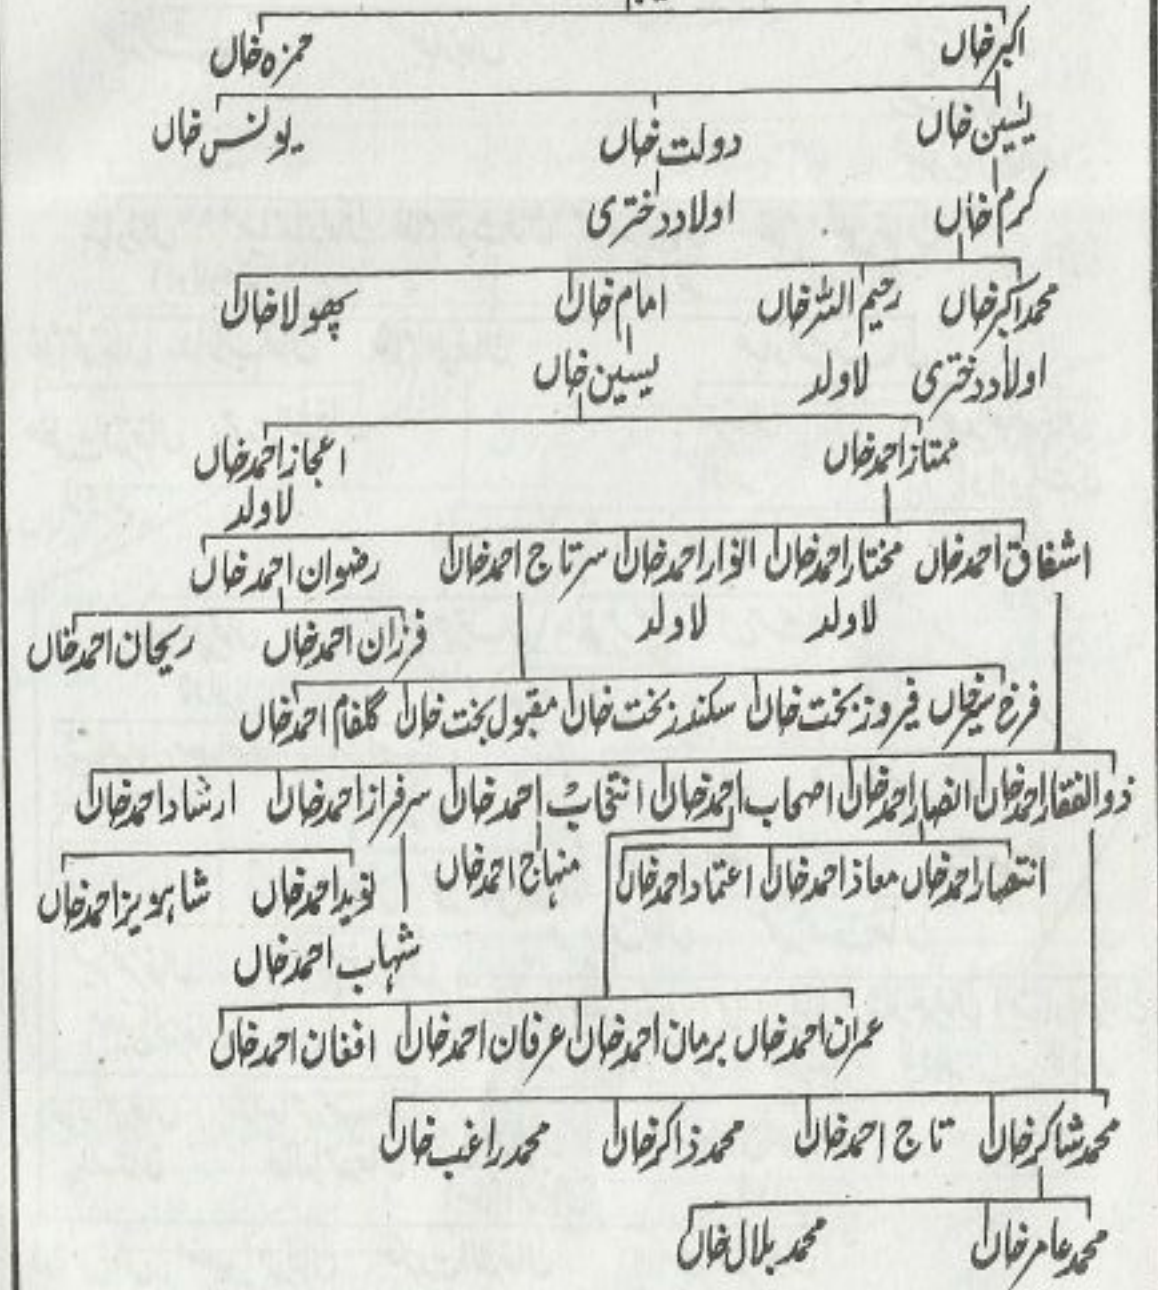 اکبر خاں حمزہ خاں
یٰسین خاں دولت خاں یونس خاں
کرم خاں اولاد دختری
محمد اکبر خاں رحیم اللہ خاں امام خاں پھولا خاں
اولاد دختری لاولد یسین خاں
ممتاز احمد خاں اعجاز احمد خاں
لاولد
اشفاق احمد خاں مختار احمد خاں انوار احمد خاں سرتاج احمد خاں رضوان احمد خاں
لاولد لاولد فرزان احمد خاں ریحان احمد خاں
فرخ سیر خاں فیروز بخت خاں سکندر بخت خاں مقبول بخت خاں گلفام احمد خاں
ذوالفقار احمد خاں انصار احمد خاں اصحاب احمد خاں انتخاب احمد خاں سرفراز احمد خاں ارشاد احمد خاں
انتصار احمد خاں معاذ احمد خاں اعتماد احمد خاں منہاج احمد خاں نوید احمد خاں شاہویز احمد خاں
شہاب احمد خاں
عمران احمد خاں برمان احمد خاں عرفان احمد خاں افغان احمد خاں
محمد شاکر خاں تاج احمد خاں محمد ذاکر خاں محمد راغب خاں
محمد عامر خاں محمد بلال خاں